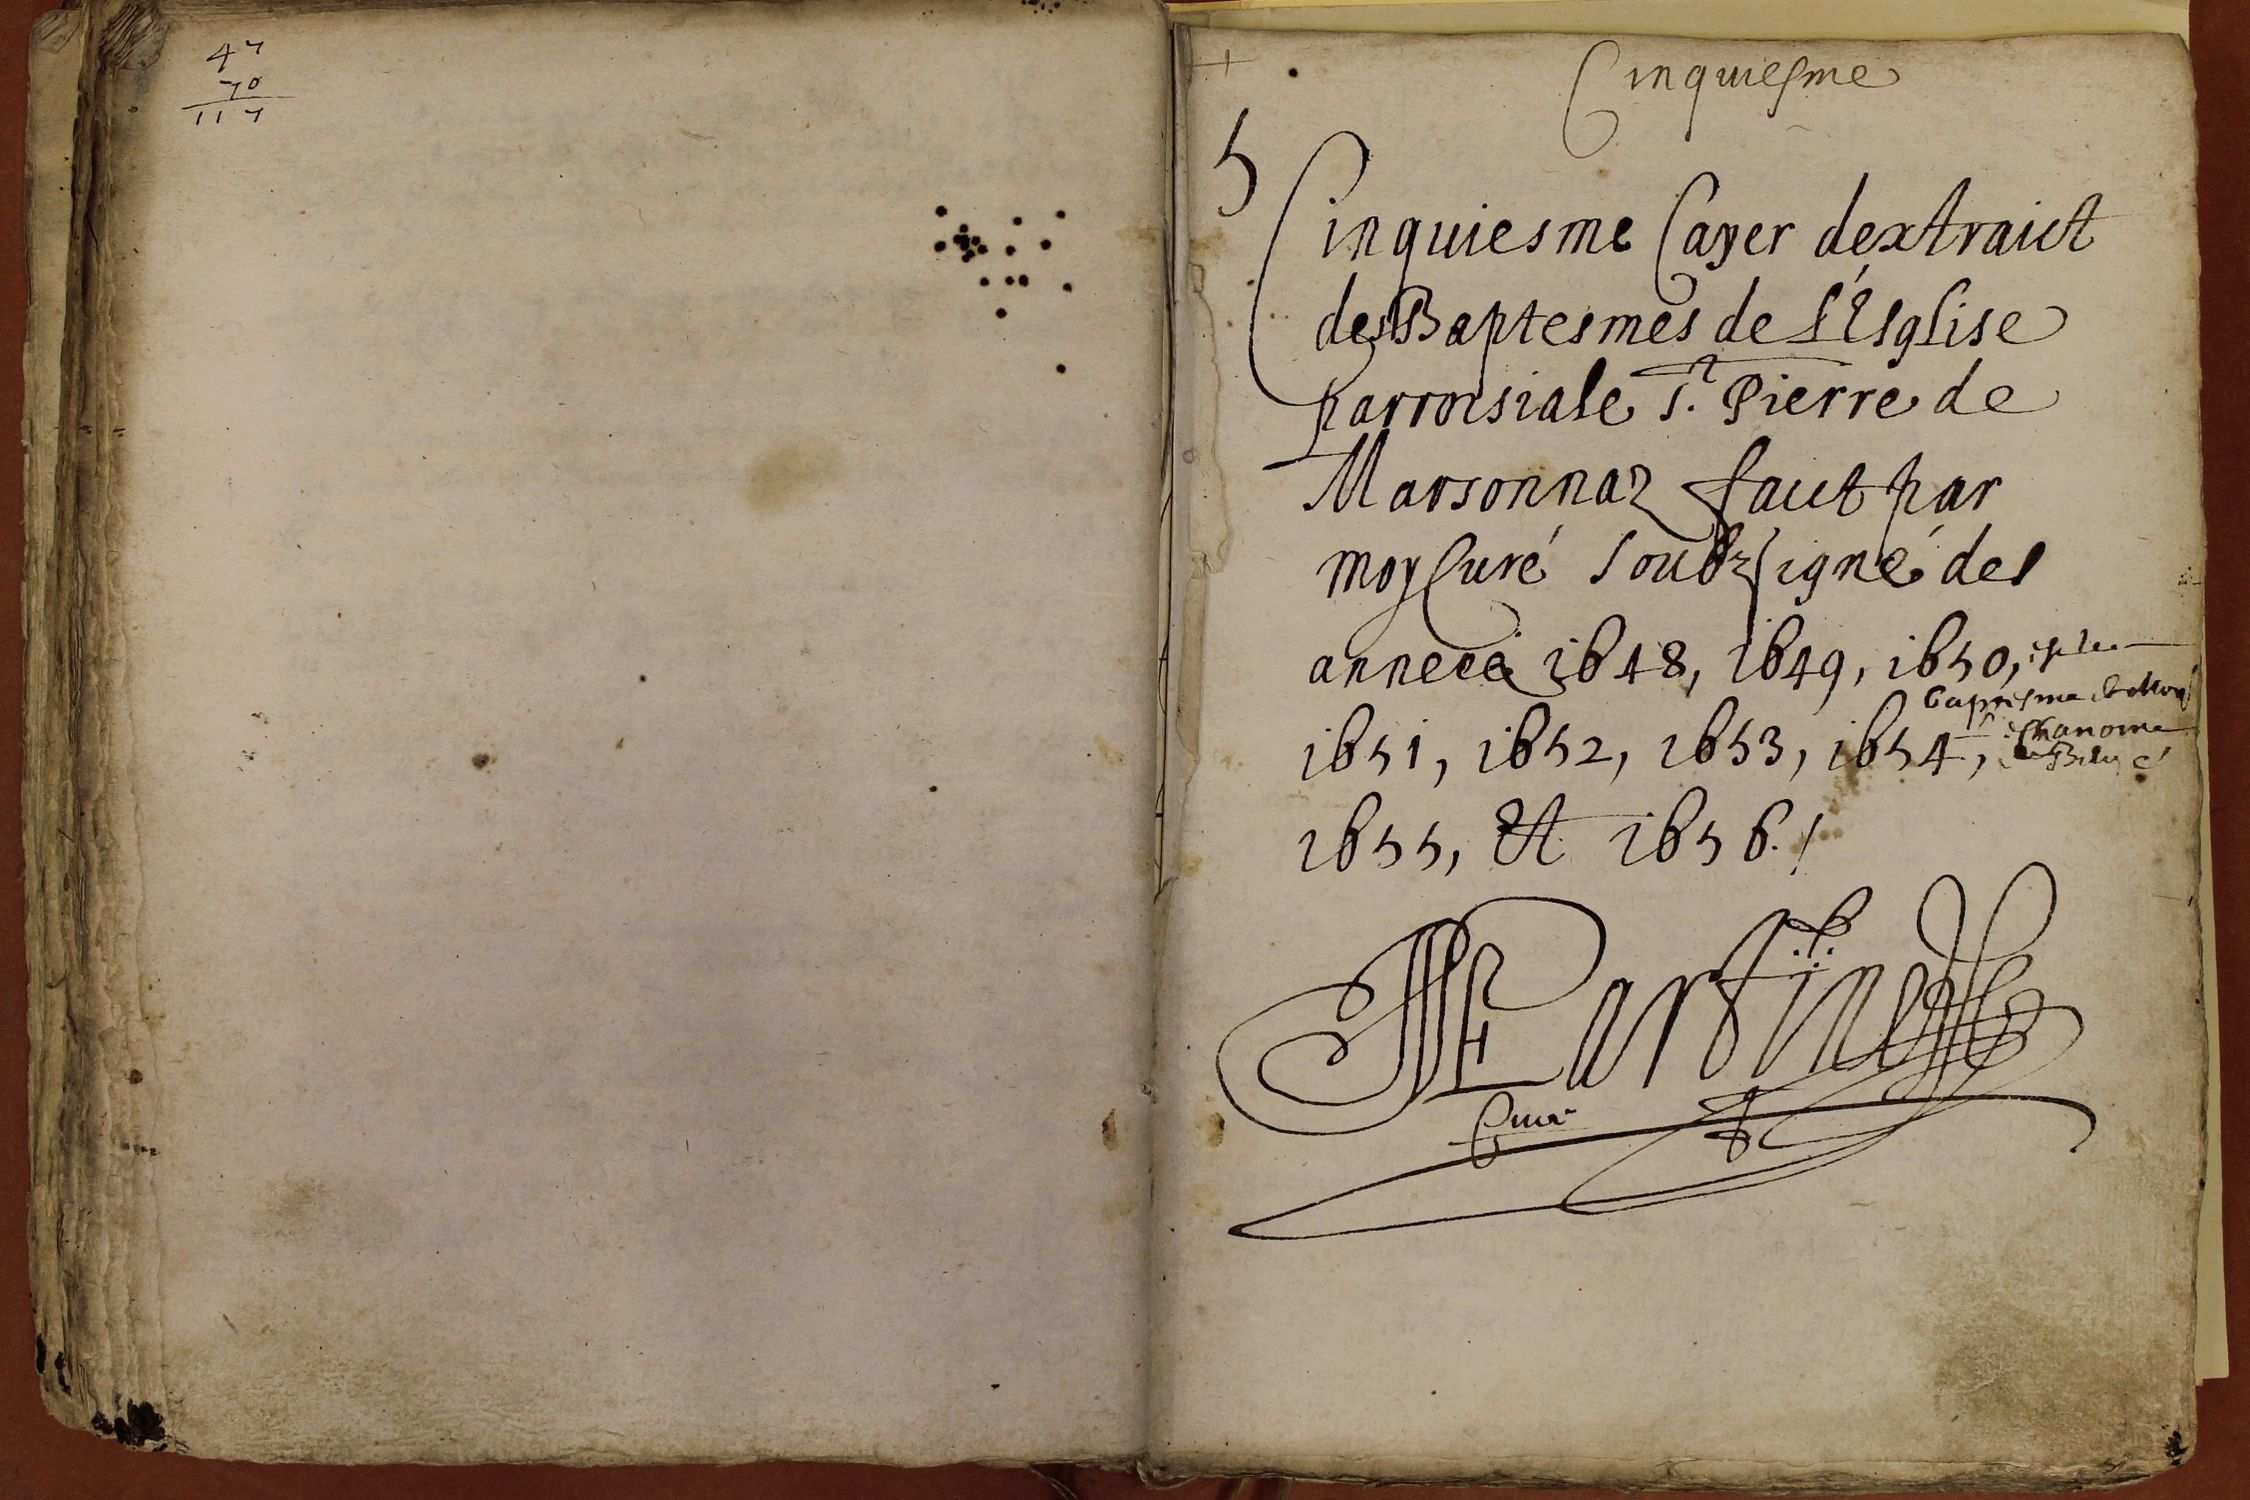 47
70
117
Cinquiesme
5
Cinquiesme Cayer dextraict
des Baptesmes de l'Esglise
parroisiale St. Pierre de
Marsonnaz faict par
moy Curé soubzsigné des
anneés 1648, 1649, 1650,
baptesme de
1651, 1652, 1653, 1654,
chanoine
1655, Et 1656./
Curé